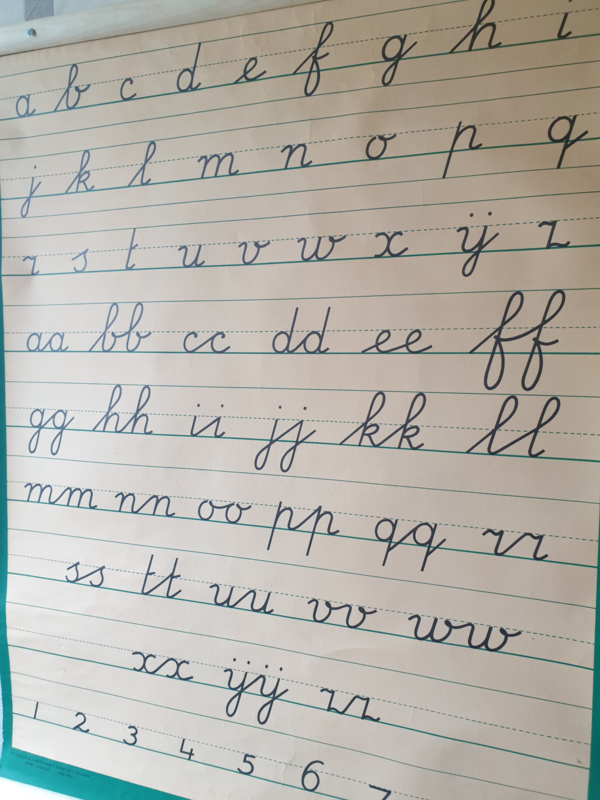 a b c d e f g h i
j k l m n o p q
r s t u v w x ij z
aa bb cc dd ee ff
gg hh ii jj kk ll
mm nn oo pp qq rr
ss tt uu vv ww
xx ijij zz
1 2 3 4 5 6 7